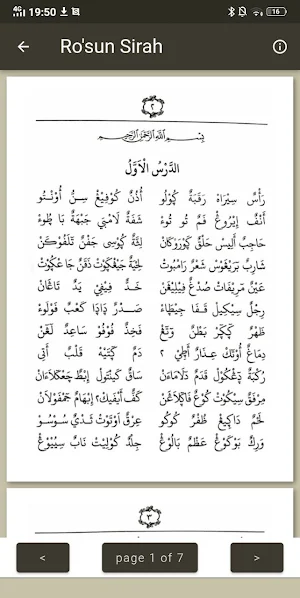 4G 19:50 16
Ro'sun Sirah
٢
بِسْمِ اللهِ الرَّحْمٰنِ الرَّحِيْمِ
الدَّرْسُ الْأَوَّلُ
رَأْسٌ سِيْرَاهْ رَقَبَةٌ ڮُوْلُو أُذُنٌ كُوْفِيْڠْ سِنٌّ أُوْنْتُو
أَنْفٌ إِيْرُوْڠْ فَمٌ تُوْ تُوْءْ شَفَةٌ لَامْبَيْ جَبْهَةٌ بَا طُوْءْ
حَاجِبٌ أَلِيْسْ حَلْقٌ ڮَوْرَوْڮَانْ لِثَةٌ ڮُوْسِى جَفْنٌ تْلَفُوْكَنْ
شَارِبٌ بْرِيْڠَوْسْ شَعْرٌ رَامْبُوْتْ لِحْيَةٌ جَيْڠْكَوْتْ ذَقَنٌ جَاڠْكُوْتْ
عَيْنٌ مَرِيْفَاتْ صُدْغٌ فِيْلِيْڠَنْ خَدٌّ فِيْفِيْ يَدٌ تَاڠَانْ
رِجْلٌ سِيْكِيْلْ قَفَا جِيْطَاءْ صَدْرٌ دَادَا كَعْبٌ فَوْلَوْءْ
ظَهْرٌ ڮَڮَرْ بَطْنٌ وَتَڠْ فَخِذٌ فُوْفُوْ سَاعِدٌ لَڠَنْ
دِمَاغٌ أُوْتَكْ عِذَارٌ ٢ دَمٌ ڮَتِيْهْ قَلْبٌ أَتِى
رُكْبَةٌ دَڠْكُوْلْ قَدَمٌ دَلَامَاءَنْ سَاقٌ كَيْنْتَوْلْ إِبِطٌ چَڠْكَلَاءَانْ
مِرْفَقٌ سِيْكُوْتْ كُوْعٌ كَفٌّ أَيْفَيْكْ٢ إِبْهَامٌ جَمْفَوْلَانْ
لَحْمٌ دَاڮِيْڠْ ظُفُرٌ كُوْكُو عِرْقٌ أَوْتَوْتْ ثَدْيٌ سُوْسُوْ
وَرِكٌ بَوْكَوْڠْ عَظْمٌ بَالُوْڠْ جِلْدٌ كُوْلِيْتْ نَابٌ سِيْيُوْڠْ
٣
<
page 1 of 7
>